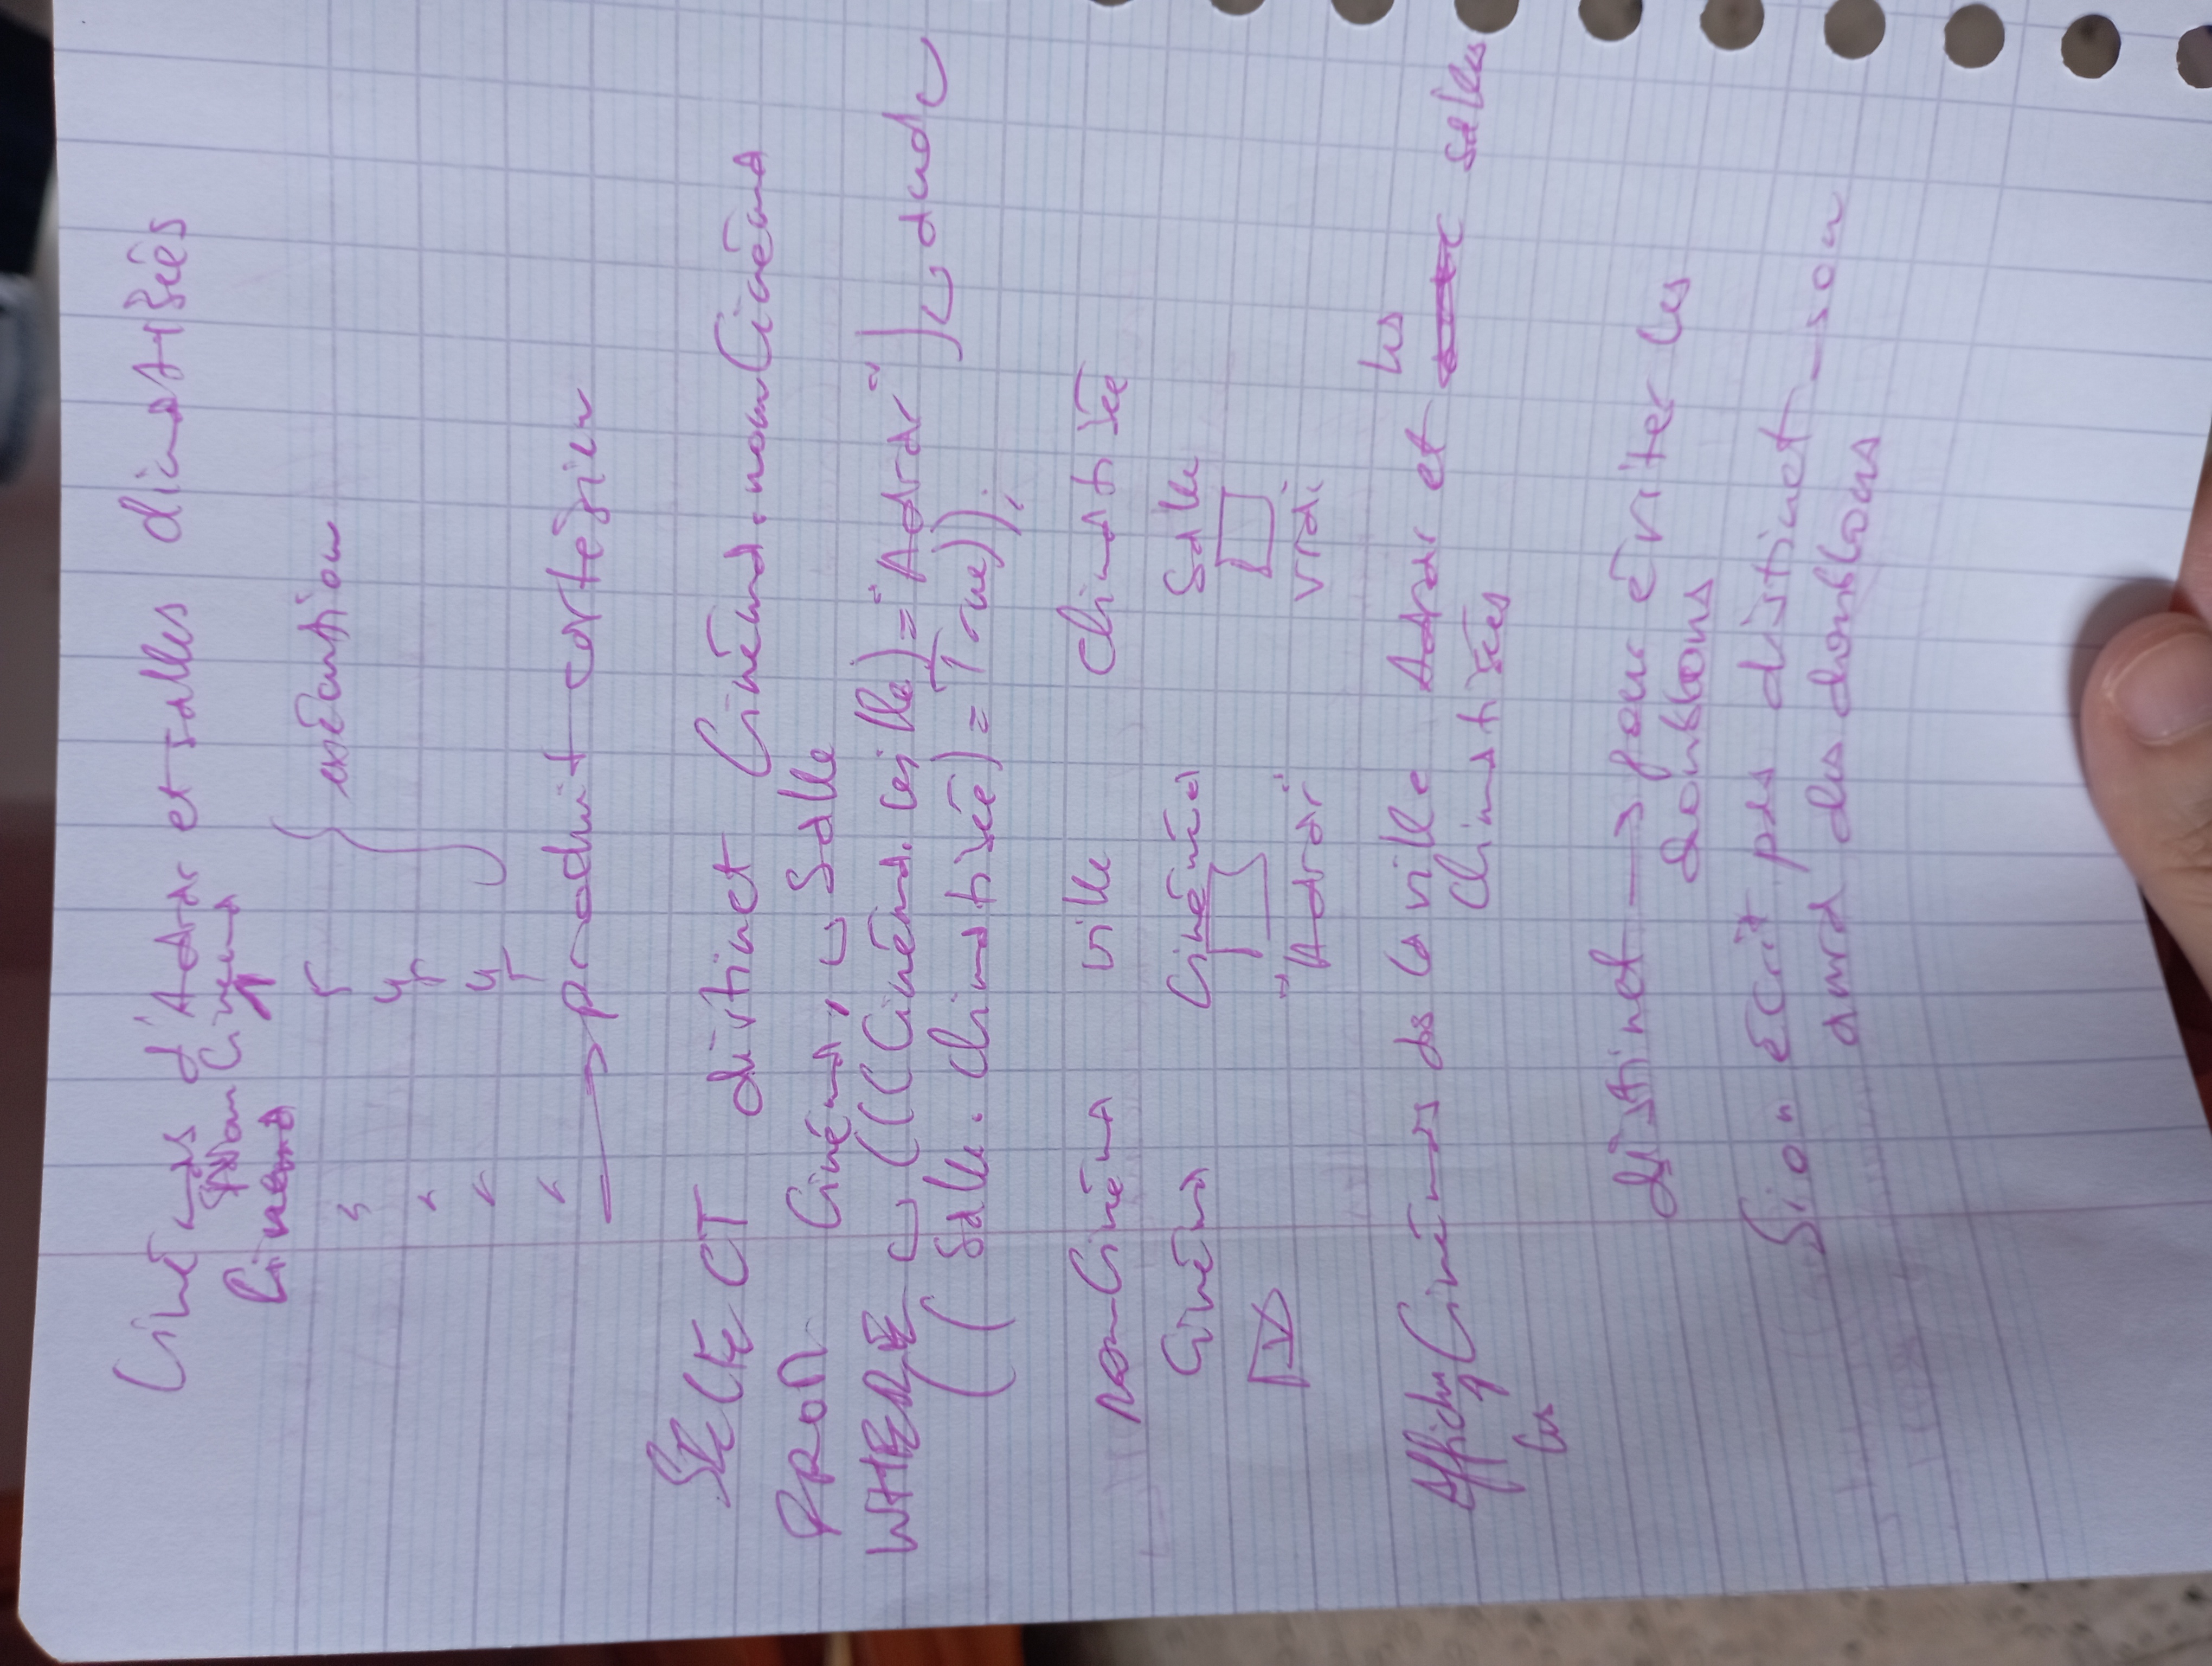 Cinémas d'Adrar et salles climatisées
nomCinéma
Cinéma
exécution
produit cartésien
SELECT distinct Cinéma.nomCinéma
FROM Cinéma, Salle
WHERE (((Cinéma.ville)="Adrar") and
((Salle.climatisée)=True));
nomCinéma ville climatisée
Cinéma Cinéma Salle
"Adrar" vrai
Afficher les Cinémas de la ville Adrar et les salles
climatisées
distinct → pour éviter les
doublons
Si on écrit pas distinct → on
aura des doublons